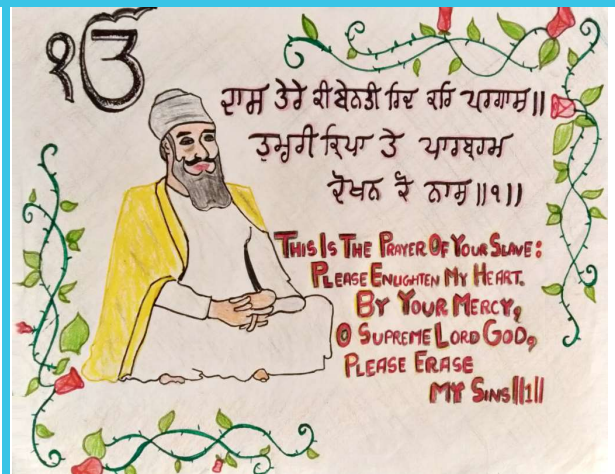 ੴ
ਦਾਸ ਤੇਰੇ ਕੀ ਬੇਨਤੀ ਰਿਦ ਕਰਿ ਪਰਗਾਸੁ॥
ਤੁਮ੍ਹਰੀ ਕ੍ਰਿਪਾ ਤੇ ਪਾਰਬ੍ਰਹਮ
ਦੋਖਨ ਕੋ ਨਾਸੁ॥੧॥
THIS IS THE PRAYER OF YOUR SLAVE:
PLEASE ENLIGHTEN MY HEART.
BY YOUR MERCY,
O SUPREME LORD GOD,
PLEASE ERASE
MY SINS||1||